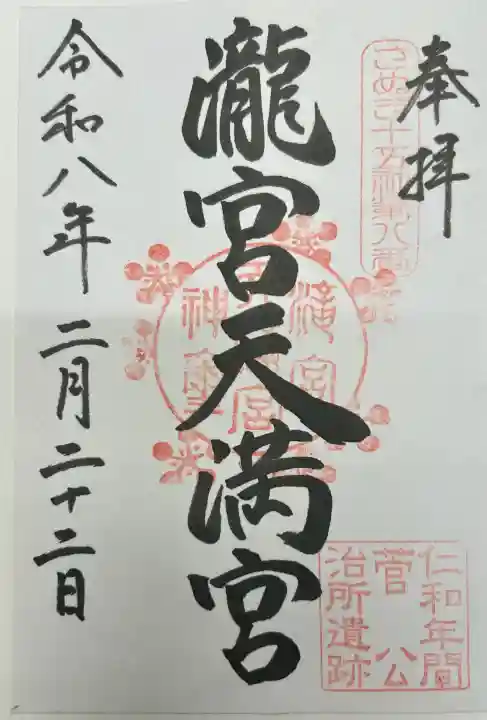 奉拝
さぬき十五社第八番
瀧宮天満宮
令和八年二月二十二日
仁和年間
菅公
治所遺跡